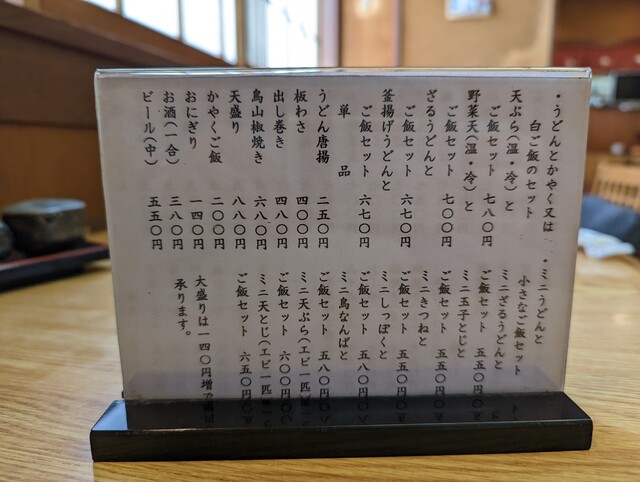 ・うどんとかやく又は
白ご飯のセット
天ぷら(温・冷)と
ご飯セット 七八〇円
野菜天(温・冷)と
ご飯セット 七〇〇円
ざるうどんと
ご飯セット 六七〇円
釜揚げうどんと
ご飯セット 六七〇円
単品
うどん唐揚 二五〇円
板わさ 四〇〇円
出し巻き 四八〇円
鳥山椒焼き 六八〇円
天盛り 八八〇円
かやくご飯 二〇〇円
おにぎり 一四〇円
お酒(一合) 三八〇円
ビール(中) 五五〇円
・ミニうどんと
小さなご飯セット
ミニざるうどんと
ご飯セット 五五〇円
ミニ玉子とじと
ご飯セット 五五〇円
ミニきつねと
ご飯セット 五五〇円
ミニしっぽくと
ご飯セット 五八〇円
ミニ鳥なんばと
ご飯セット 五八〇円
ミニ天ぷら(エビ一匹
ご飯セット 六〇〇円
ミニ天とじ(エビ一匹
ご飯セット 六五〇円
大盛りは一四〇円増で
承ります。